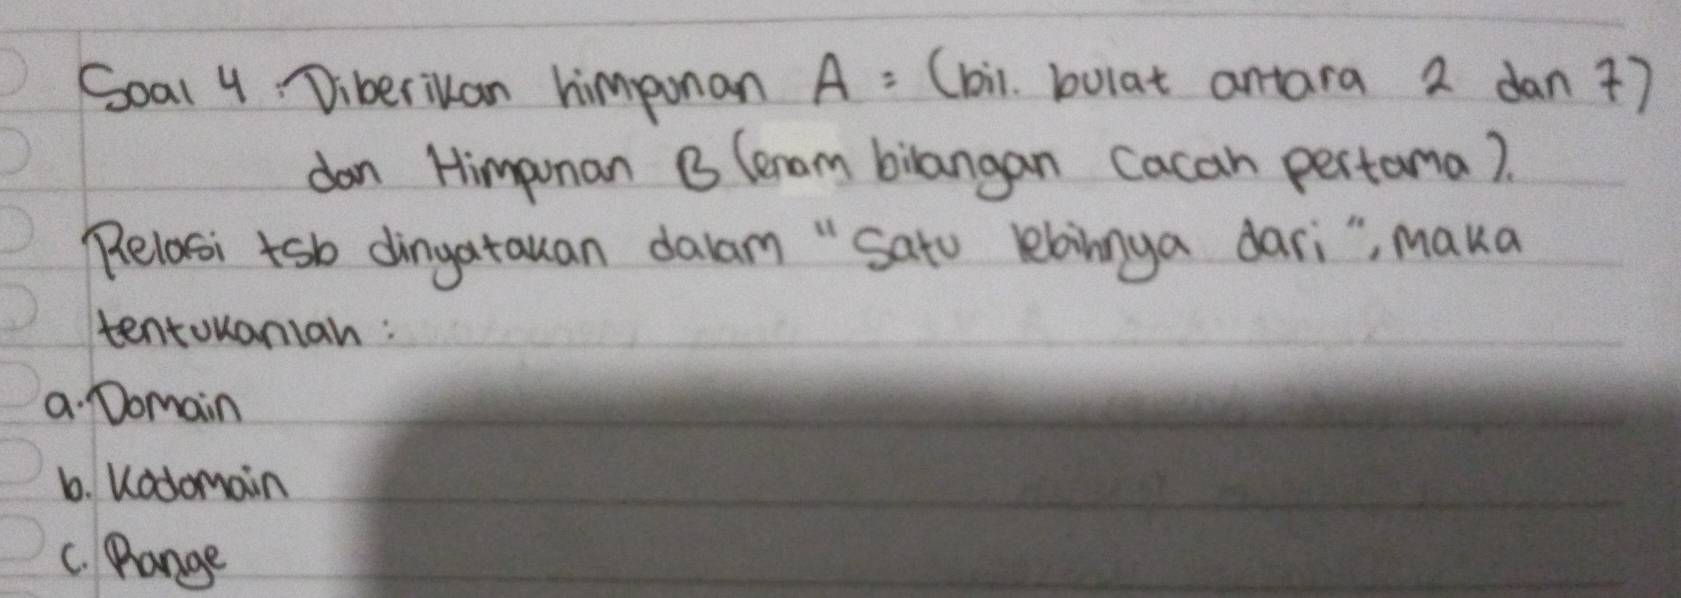 Soal 4 : Diberikan himpunan A = (bil. bulat antara 2 dan 7)
dan Himpunan B (enam bilangan Cacah pertama).
Relasi tsb dinyatakan dalam "Satu lebihnya dari", maka
tentukanlah :
a. Domain
b. Kodomain
c. Range